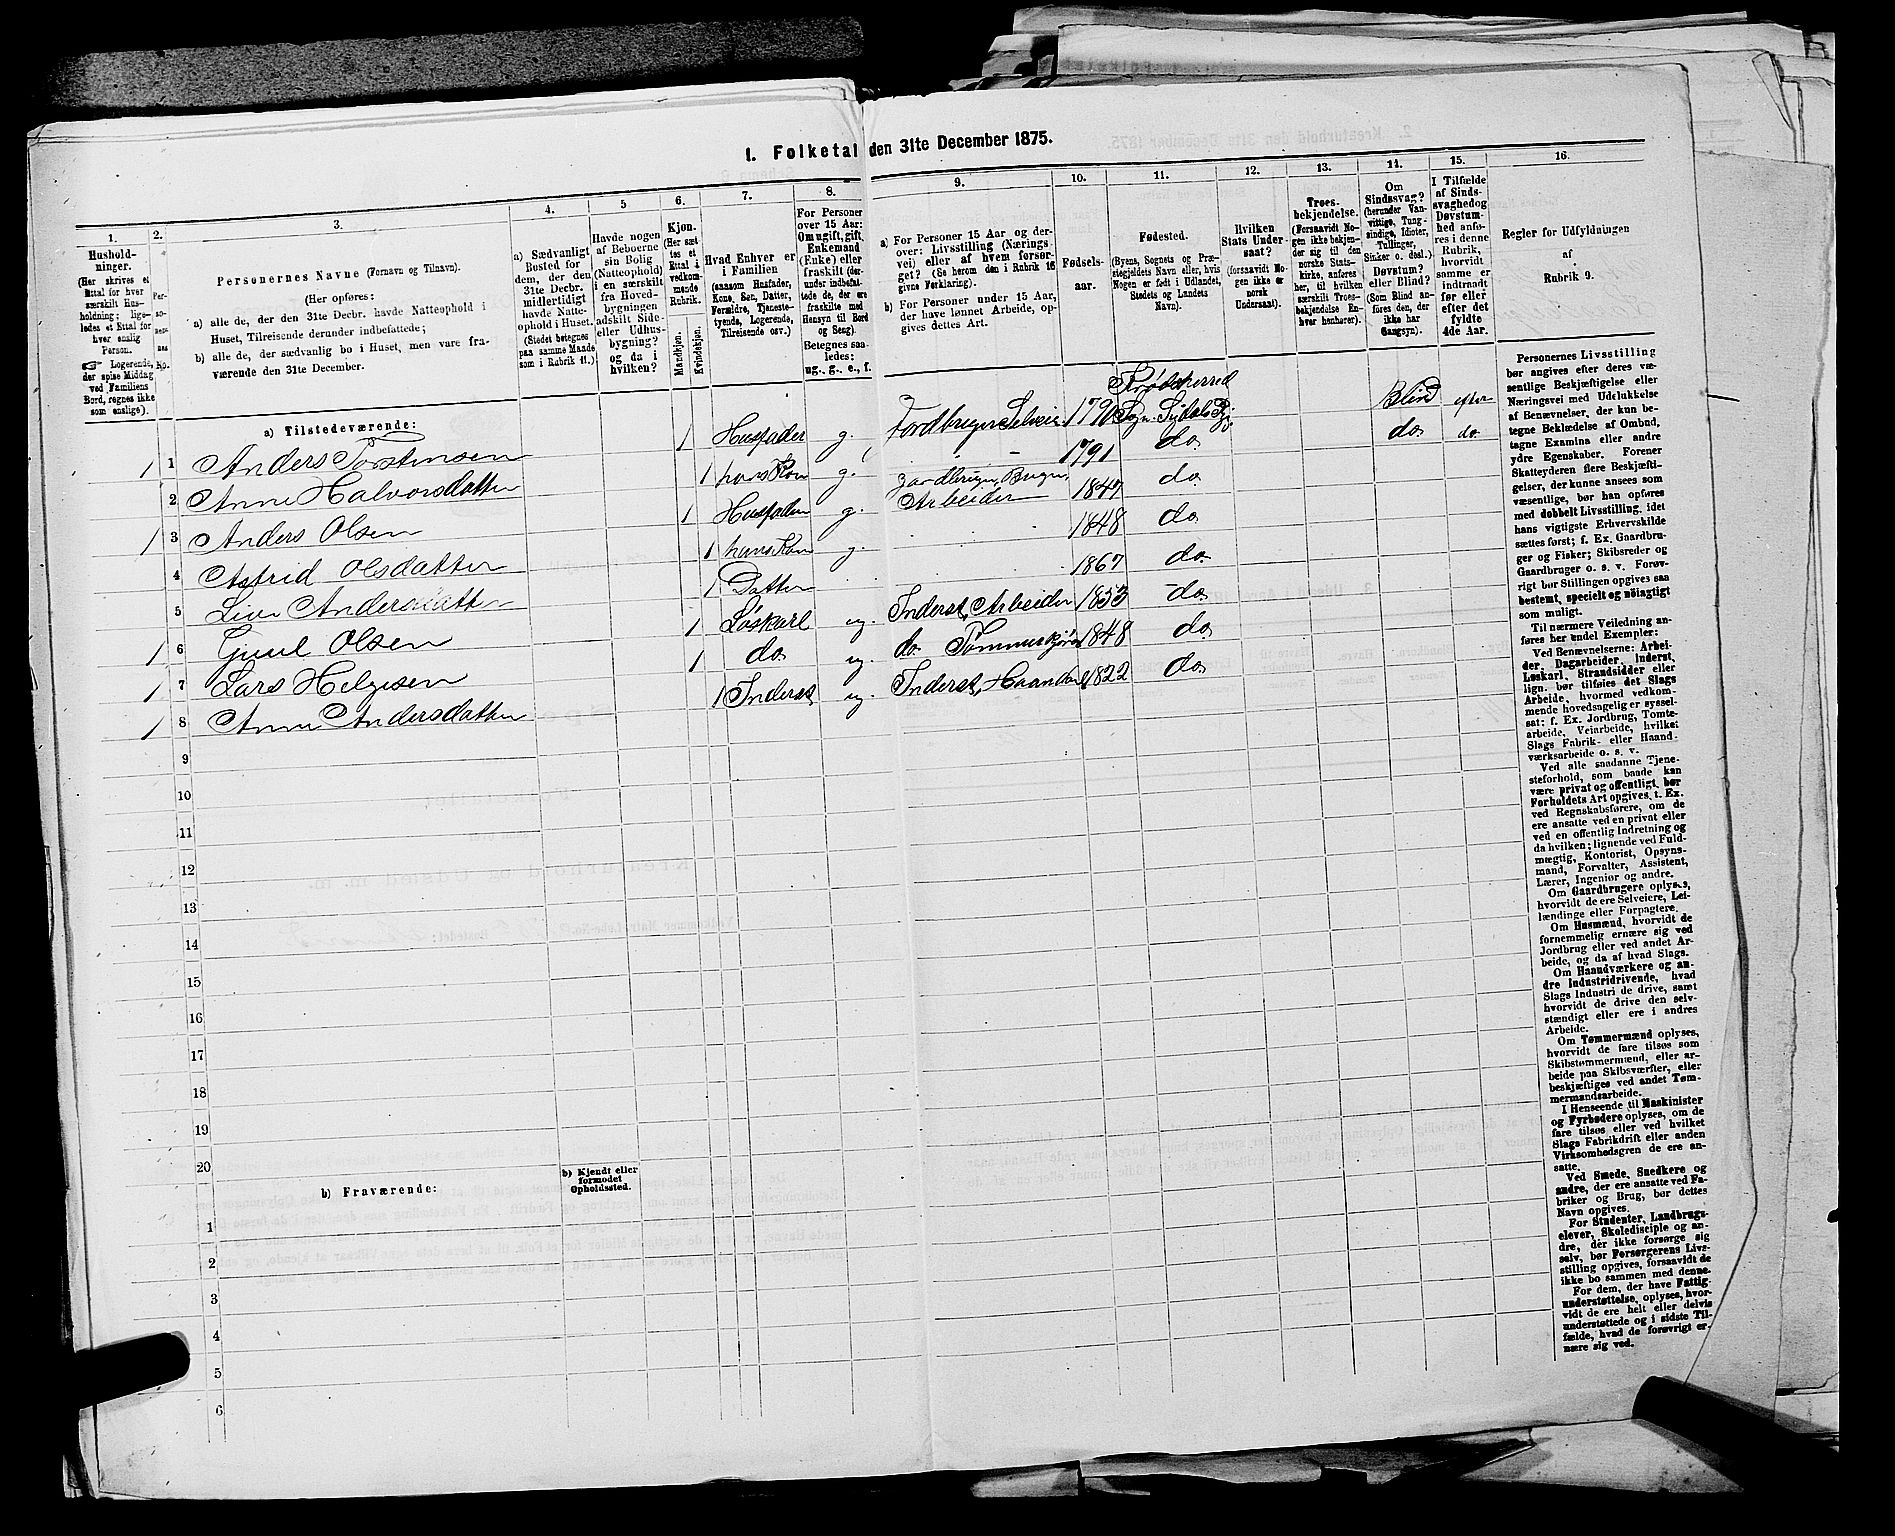 1. Folketal den 31te December 1875.
1.
2.
3.
4.
5
6.
7.
8.
9.
10.
11.
12.
13.
14.
15.
16.
Hushold-
ninger.
(Her skrives et
Ettal for hver
særskilt Hus-
holdning; lige-
ledes et Ettal for
hver enslig
Person.
Logerende,
der spise Middag
ved Familiens
Bord, regnes ikke
som enslige).
Per-
so-
nens
No.
Personernes Navne (Fornavn og Tilnavn).
(Her opføres:
a) alle de, der den 31te Decbr. havde Natteophold i
Huset, Tilreisende derunder indbefattede;
b) alle de, der sædvanlig bo i Huset, men vare fra-
værende den 31te December.
a) Sædvanligt
Bosted for
dem, der den
31te Decbr.
midlertidigt
havde Natte-
ophold i Huset.
(Stedet betegnes
paa samme Maade
som i Rubrik 11.)
Havde nogen
af Beboerne
sin Bolig
(Natteophold)
i en særskilt
fra Hoved-
bygningen
adskilt Side-
eller Udhus-
bygning?
og da i
hvilken?
Kjøn.
(Her sæt
tes et
Ettal i
vedkom-
mende
Rubrik.
Mandkjøn.
Kvindekjøn.
Hvad Enhver er
i Familien
(saasom Husfader,
Kone, Søn, Datter,
Forældre, Tjeneste-
tyende, Logerende,
Tilreisende osv.)
For Personer
over 15 Aar:
Om ugift, gift,
Enkemand
(Enke) eller
fraskilt (der-
under indbefat-
tede de, der ere
fraskilte med
Hensyn til Bord
og Seng).
Betegnes saa-
ledes:
ug., g., e., f.
a) For Personer 15 Aar og der-
over: Livsstilling (Nærings-
vei) eller af hvem forsør-
get? (Se herom den i Rubrik 16
givne Forklaring).
b) For Personer under 15 Aar,
der have lønnet Arbeide, op-
gives dettes Art.
Fødsels-
aar.
Fødested.
(Byens, Sognets og Præ-
stegjeldets Navn eller, hvis
Nogen er født i Udlandet,
Stedets og Landets
Navn).
Hvilken
Stats Under-
saat?
(forsaavidt No-
gen ikke er
norsk
Undersaat).
Troes-
bekjendelse.
(Forsaavidt No-
gen ikke bekjen-
der sig til den
norske Stats-
kirke, anføres
her, til hvilken
særskilt Troes-
bekjendelse En-
hver henhører).
Om
Sindssvag?
(herunder Van-
vittige, Tung-
sindige, Idioter,
Tullinger,
Sinker o. desl.)
Døvstum?
eller Blind?
(Som Blind an-
føres den, der
ikke har
Gangsyn).
I Tilfælde
af Sinds-
svaghed og
Døvstum-
hed anfø-
res i denne
Rubrik,
hvorvidt
samme er
indtraadt
før eller
efter det
fyldte
4de Aar.
Regler for Udfyldningen
af
Rubrik 9.
a) Tilstedeværende:
1 1 Anders Torstensen 1 Husfader g. Jordbruger Selveier 1790 Krødsherred Sogn. Sigdals Pgj Blind efter
2 Anne Halvorsdatter 1 hans Kone g. 1791 do do do
1 3 Anders Olsen 1 Husfader g. Arbeider 1847 do
4 Astrid Olsdatter 1 hans Kone g. 1848 do
5 Live Andersdatter 1 Datter 1867 do
1 6 Guul Olsen 1 Løskarl ug. Inderst, Arbeider 1853 do
1 7 Lars Helgesen 1 do ug. do Tømmerkjører 1848 do
1 8 Anne Andersdatter 1 Inderst ug. Inderst, 1822 do
9
10
11
12
13
14
15
16
17
18
19
20
b) Fraværende:
b) Kjendt eller
formodet
Opholdssted.
1
2
3
4
5
6
Personernes Livsstilling
bør angives efter deres væ-
sentlige Beskjæftigelse eller
Næringsvei med Udelukkelse
af Benævnelser, der kun be-
tegne Beklædelse af Ombud,
tagne Examina eller andre
ydre Egenskaber. Forener
Skatteyderen flere Beskjæfti-
gelser, der kunne ansees som
væsentlige, bør han opføres
med dobbelt Livsstilling, idet
hans vigtigste Erhvervskilde
sættes først; f. Ex. Gaardbru-
ger og Fisker; Skibsreder og
Gaardbruger o. s. v. Forøv-
rigt bør Stillingen opgives saa
bestemt, specielt og nøiagtigt
som muligt.
Til nærmere Veiledning an-
føres her endel Exempler:
Ved Benævnelserne: Arbei-
der, Dagarbeider, Inderst,
Løskarl, Strandsidder eller
lign. bør tilføies det Slags
Arbeide, hvormed vedkom-
mende hovedsagelig er syssel-
sat; f. Ex. Jordbrug, Tomte-
arbeide, Veiarbeide, hvilket
Slags Fabrik- eller Haand-
værksarbeide o. s. v.
Ved alle saadanne Tjene-
steforhold, som baade kan
være privat og offentligt, bør
Forholdets Art opgives, t. Ex.
ved Regnskabsførere, om de
ere ansatte ved en privat eller
ved en offentlig Indretning og
da hvilken; lignende ved Fuld-
mægtig, Kontorist, Opsyns-
mand, Forvalter, Assistent,
Lærer, Ingeniør og andre.
Om Gaardbrugere oplyses,
hvorvidt de ere Selveiere, Lei-
lændinge eller Forpagtere.
Om Husmænd, hvorvidt de
fornemmelig ernære sig ved
Jordbrug eller ved andet Ar-
beide, og da af hvad Slags.
Om Haandværkere og an-
dre Industridrivende, hvad
Slags Industri de drive, samt
hvorvidt de drive den selv-
stændigt eller ere i andres
Arbeide.
Om Tømmermænd oplyses,
hvorvidt de fare tilsøs som
Skibstømmermænd, eller ar-
beide paa Skibsværfter, eller
beskjæftiges ved andet Tøm-
mermandsarbeide.
I Henseende til Maskinister
og Fyrbødere oplyses, om de
fare tilsøs eller ved hvilket
Slags Fabrikdrift eller anden
Virksomhedsgren de ere an-
satte.
Ved Smede, Snedkere og
andre, der ere ansatte ved Fa-
briker og Brug, bør dettes
Navn opgives.
For Studenter, Landbrugs-
elever, Skoledisciple og an-
dre, der ikke forsørge sig
selv, bør Forsørgerens Livs-
stilling opgives, forsaavidt de
ikke bo sammen med denne.
For dem, der have Fattig-
understøttelse, oplyses, hvor-
vidt de ere helt eller delvis
understøttede og i sidste Til-
fælde, hvad de forøvrigt er-
nære sig ved.